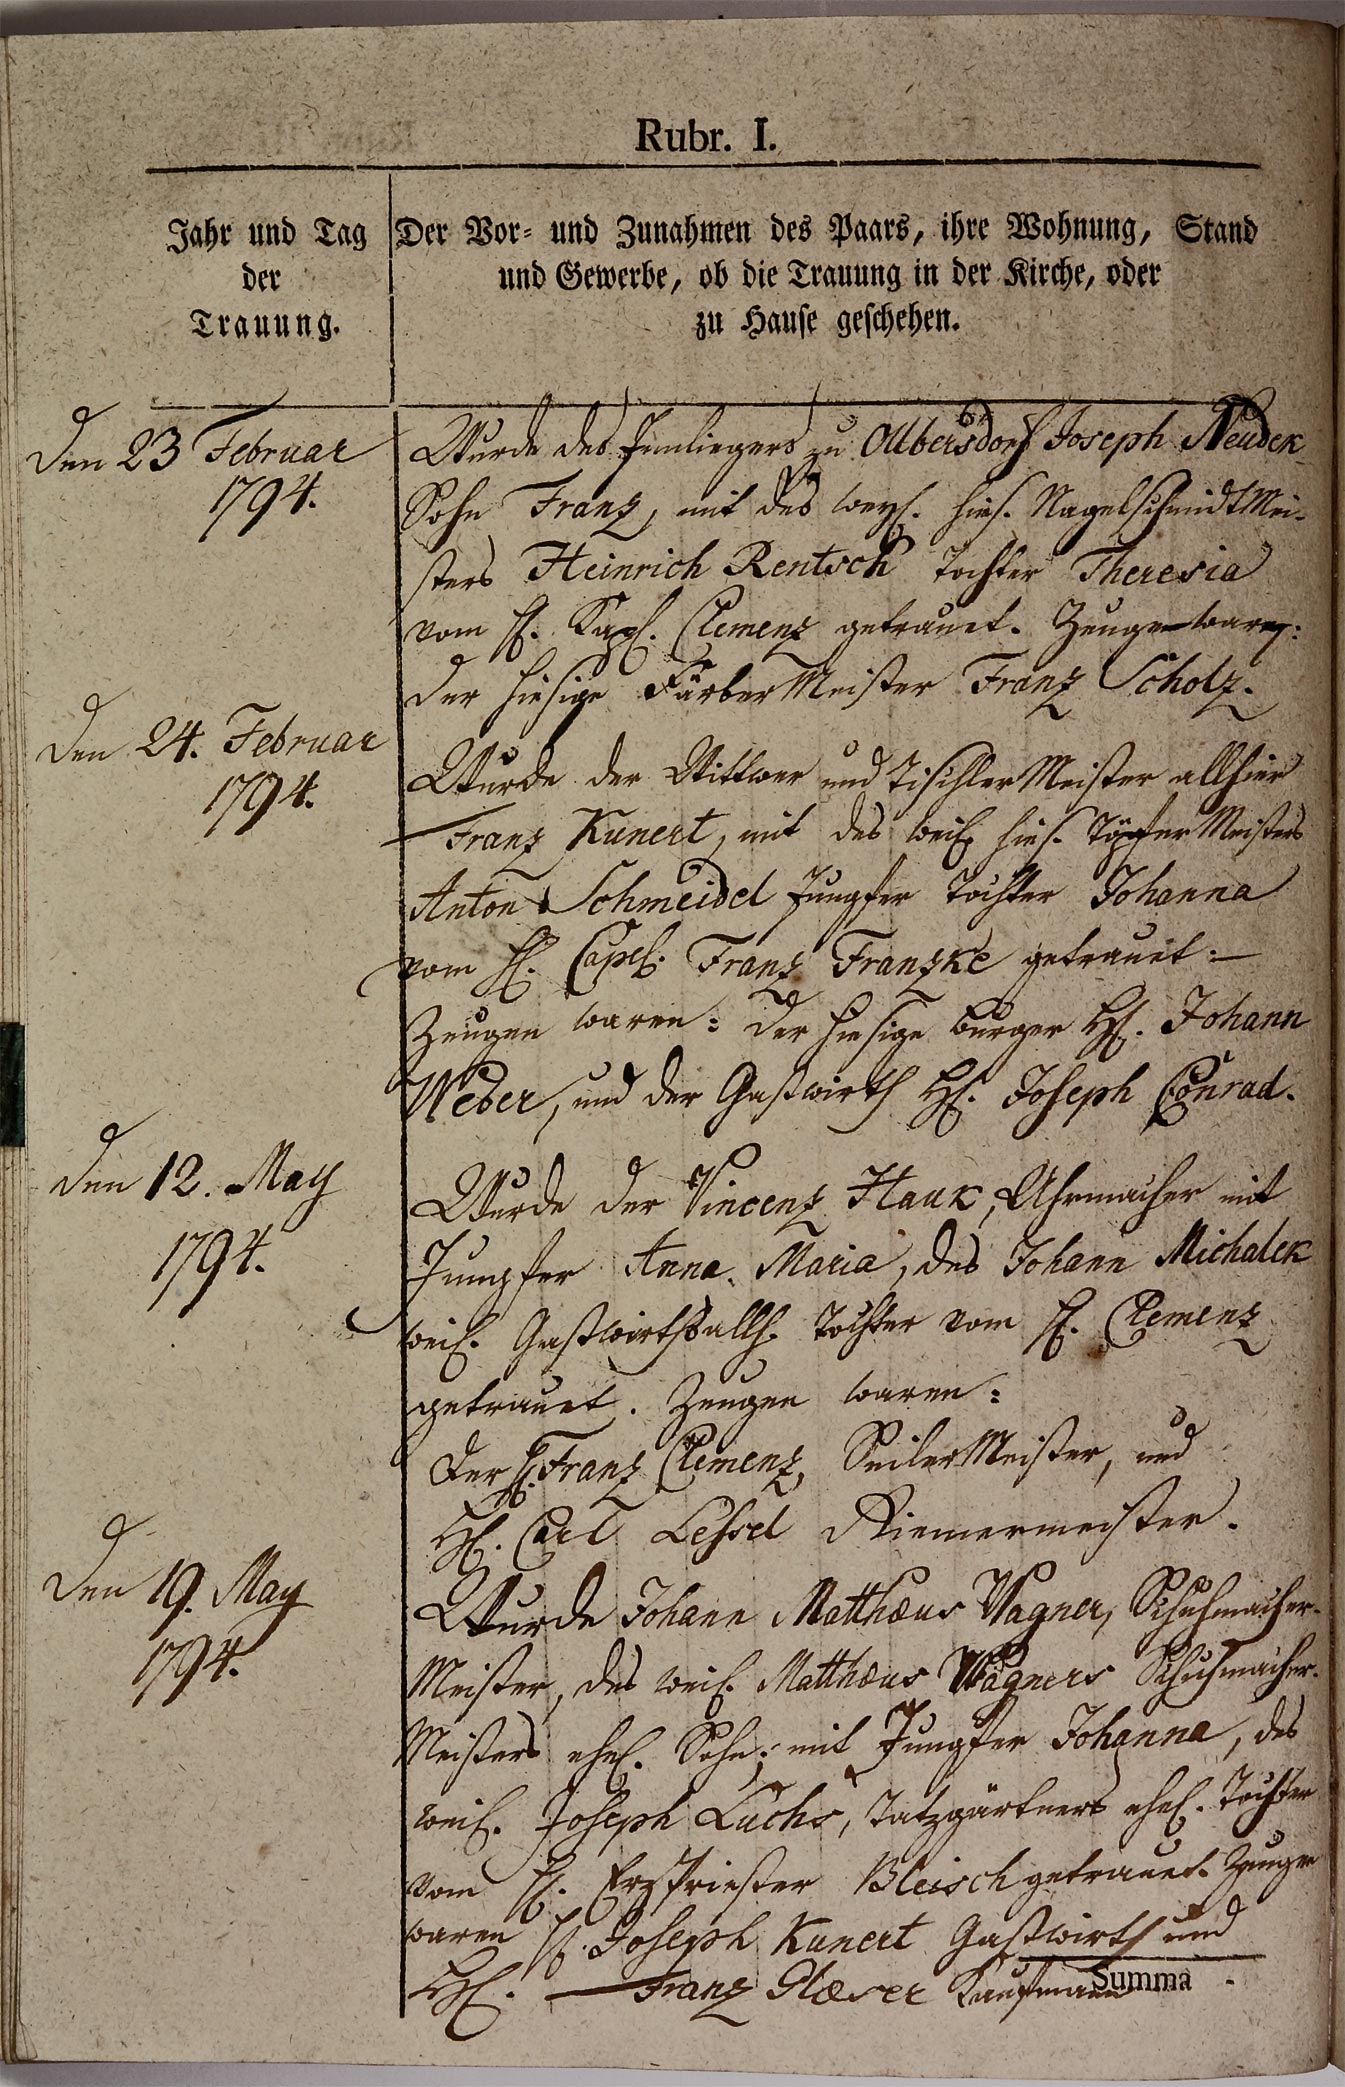 Rubr. I.
Jahr und Tag
der
Trauung.
Der Vor- und Zunahmen des Paars, ihre Wohnung, Stand
und Gewerbe, ob die Trauung in der Kirche, oder
zu Hause geschehen.
Den 23 Februar
1794.
Wurde des Innliegers zu Olbersdorf Joseph Neudek
Sohn Franz, mit des weyl. hies. NagelschmidtMei-
sters Heinrich Rentsch Tochter Theresia
vom H. Kapl. Clemenz getrauet. Zeugen waren:
der hiesige FärberMeister Franz Scholz.
Den 24. Februar
1794.
Wurde der Wittwer und TischlerMeister allhier
Franz Kunert, mit des weil. hies. TöpferMeisters
Anton Schmeidel Jungfer Tochter Johanna
vom H. Capel. Franz Franzke getrauet:
Zeugen waren: der hiesige Burger H. Johann
Weber, und der Gastwirth H. Joseph Conrad.
Den 12. May
1794.
Wurde der Vincenz Hauk, Uhrmacher mit
Jumpfer Anna Maria, des Johann Michalek
weil. Gastwirths allh. Tochter vom H. Clemenz
getrauet. Zeugen waren:
Der H. Franz Clemenz, SeilerMeister, und
H. Carl Lessel Riemermeister.
Den 19. May
1794.
Wurde Johann Matthæus Wagner, Schuhmacher-
Meister, des weil. Matthæus Wagners Schuhmacher-
Meisters ehel. Sohn; mit Jungfer Johanna, des
weil. Joseph Luchs, Tatzgärtners ehel. Tochter
vom H. ErzPriester Bleisch getrauet. Zeugen
waren H. Joseph Kunert Gastwirth und
H. Franz Glæser Kaufmann
Summa